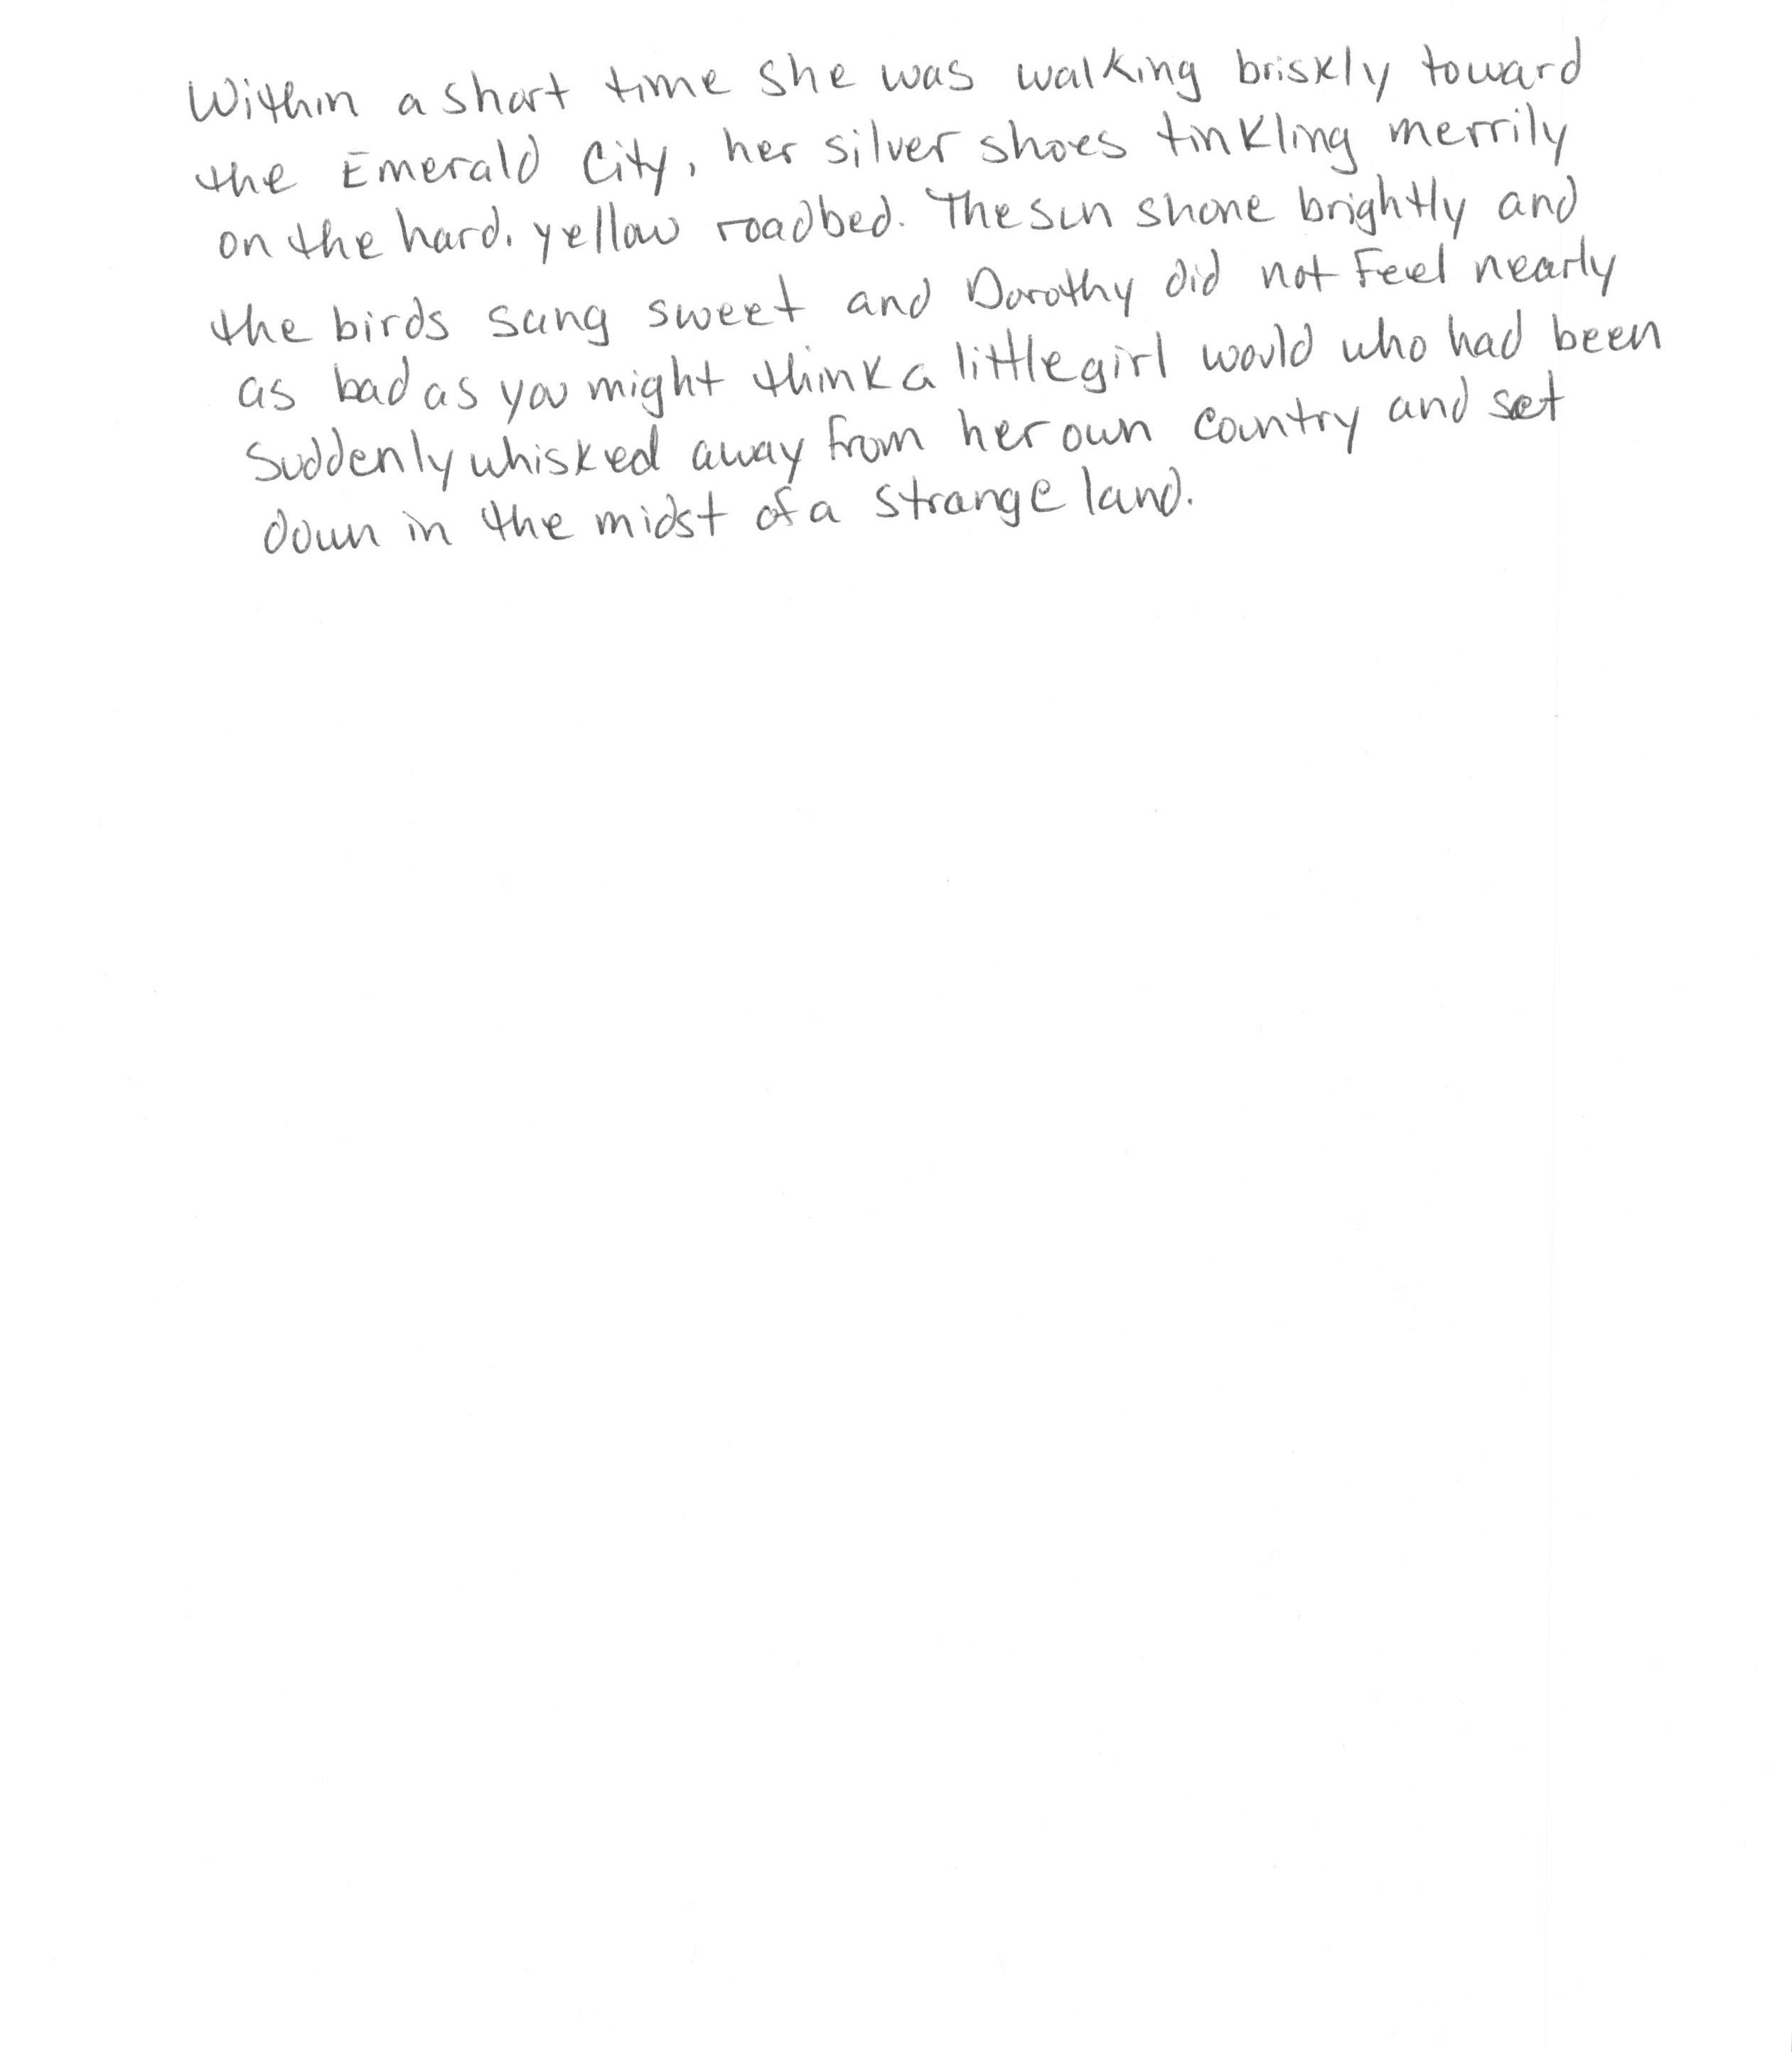 Within a short time she was walking briskly toward
the Emerald City, her silver shoes tinkling merrily
on the hard, yellow roadbed. The sun shone brightly and
the birds sang sweet and Dorothy did not feel nearly
as bad as you might think a little girl would who had been
suddenly whisked away from her own country and set
down in the midst of a strange land.